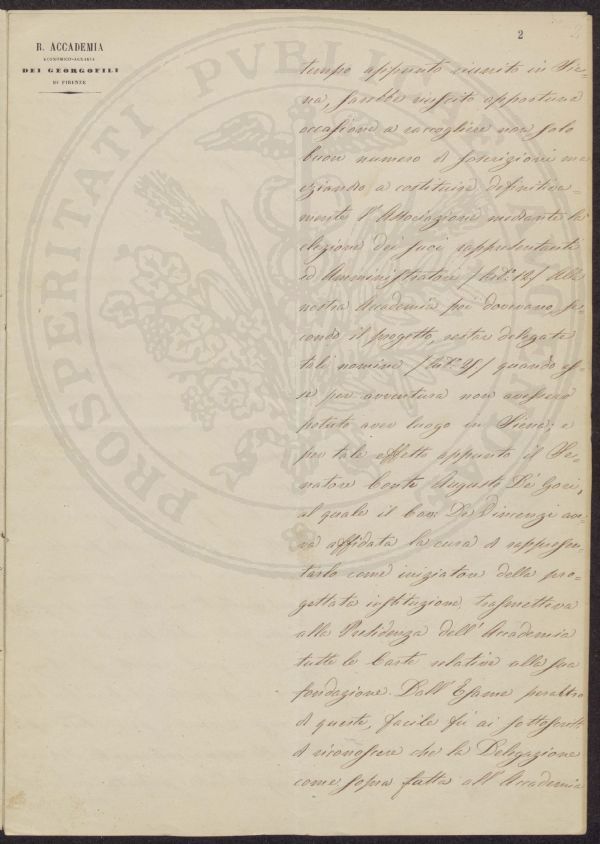 2
R. ACCADEMIA
ECONOMICO-AGRARIA
DEI GEORGOFILI
DI FIRENZE
PROSPERITATI PUBLICAE AUGENDAE
tempo appunto riunito in Sie-
na, sarebbe riuscito opportuna
occasione a raccogliere non solo
buon numero di soscrizioni ma
eziandio a costituire definitiva=
mente l'Associazione mediante la
elezione dei suoi rappresentanti
ed Amministratori (Art.° 12) Alla
nostra Accademia poi dovevano, se-
condo il progetto, restar delegate
tali nomine quando es-
se per avventura non avessero
potuto aver luogo in Siena; e
per tale effetto appunto il Se-
natore Conte Augusto De' Gori,
al quale il Com. De Vincenzi ave-
va affidata la cura di rappresen-
tarlo come iniziatore della pro=
gettata instituzione, trasmetteva
alla Presidenza dell'Accademia
tutte le Carte relative alla sua
fondazione. Dall'Esame peraltro
di queste, facile fu ai sottoscritti
di riconoscere che la Delegazione
come sopra fatta all'Accademia